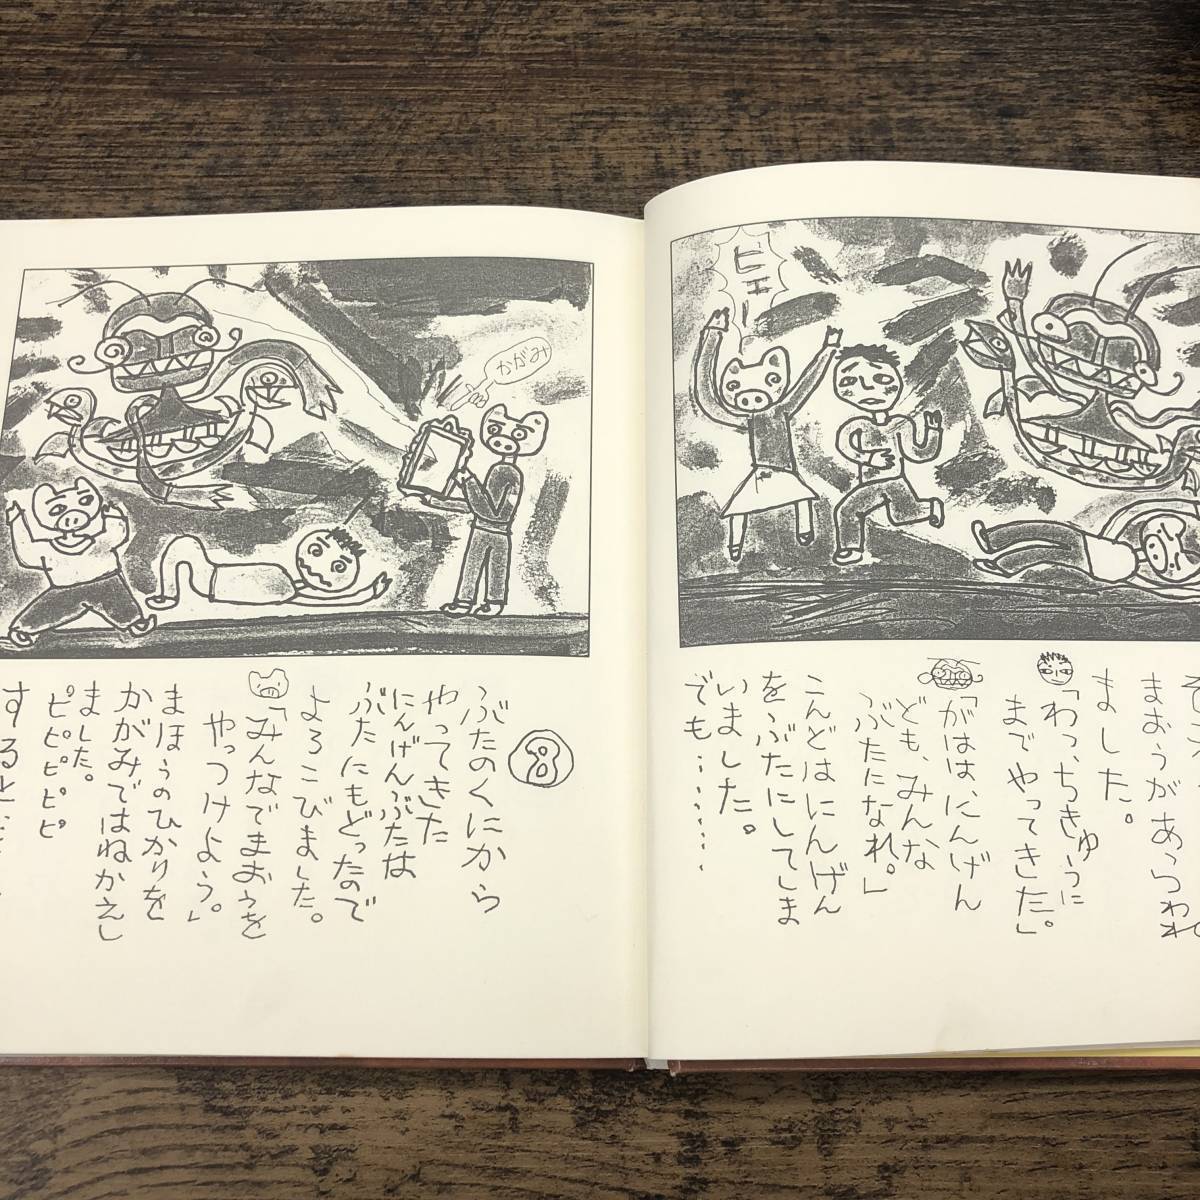 ビエー
まおうがあらわれ
ました。
「わっ、ちきゅうに
までやってきた。」
「がはは、にんげん
ども、みんな
ぶたになれ。」
こんどはにんげん
をぶたにしてしま
いました。
でも……
かがみ
8
ぶたのくにから
やってきた
にんげんぶたは
ぶたにもどったので
よろこびました。
「みんなでまおうを
やっつけよう。」
まほうのひかりを
かがみではねかえし
ました。
ピピピピピ
すると